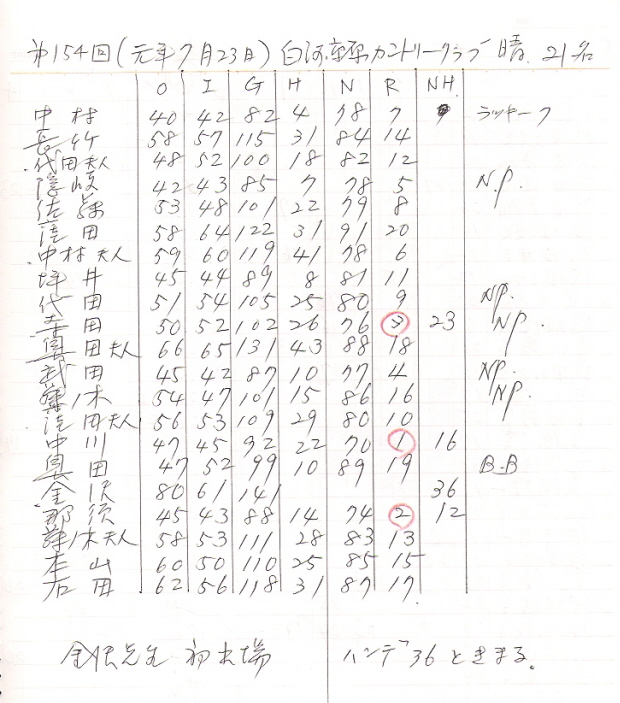 第154回(元年7月23日)白河高原カントリークラブ 晴 21名
O I G H N R NH
中村 40 42 82 4 78 7 ラッキー7
長竹 58 57 115 31 84 14
代田夫人 48 52 100 18 82 12
42 43 85 7 78 5 N.P.
佐藤 53 48 101 22 79 8
田 58 64 122 31 91 20
中村夫人 59 60 119 41 78 6
坪井 45 44 89 8 81 11
代田 51 54 105 25 80 9 NP.
幸田 50 52 102 26 76 3 23 NP.
奥田夫人 66 65 131 43 88 18
武田 45 42 87 10 77 4 NP.
木 54 47 101 15 86 16 NP.
田夫人 56 53 109 29 80 10
中川 47 45 92 22 70 1 16
奥田 47 52 99 10 89 19 B.B
金沢 80 61 141 36
那須 45 43 88 14 74 2 12
木夫人 58 53 111 28 83 13
本山 60 50 110 25 85 15
石田 62 56 118 31 87 17
金沢先生 初出場 ハンデ36ときまる。